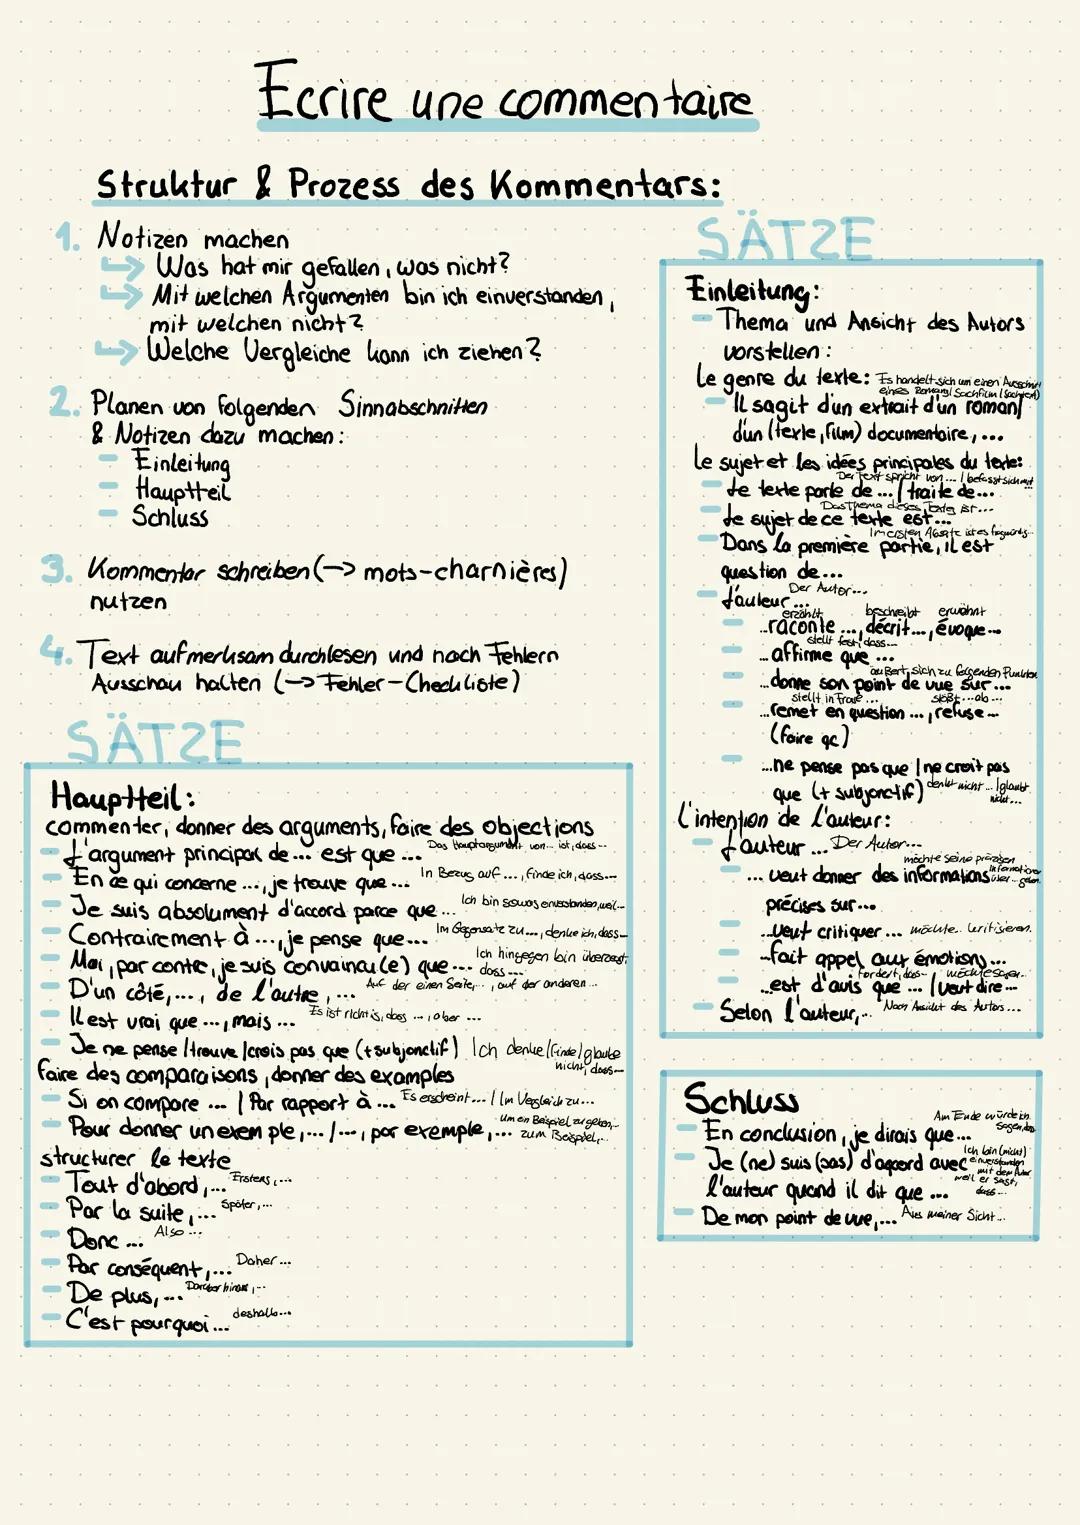 Ecrire une commentaire
Struktur & Prozess des Kommentars:
1. Notizen machen
Was hat mir gefallen, was nicht?
Mit welchen Argumenten bin ich einverstanden,
mit welchen nicht?
Welche Vergleiche kann ich ziehen?
2. Planen von folgenden Sinnabschnitten
& Notizen dazu machen:
- Einleitung
- Hauptteil
- Schluss
3. Kommentar schreiben (→ mots-charnières)
nutzen
4. Text aufmerksam durchlesen und nach Fehlern
Ausschau halten (→ Fehler-Checkliste)
SÄTZE
Hauptteil:
commenter, donner des arguments, faire des objections
- L'argument principal de... est que ... Das Hauptargument von... ist, dass...
- En ce qui concerne ..., je trouve que ... In Bezug auf ..., finde ich, dass...
- Je suis absolument d'accord parce que ... Ich bin sowas einverstanden, weil...
- Contrairement à ..., je pense que... Im Gegensatz zu..., denke ich, dass...
- Moi, par contre, je suis convaincu(e) que ... Ich hingegen bin überzeugt,
dass ...
- D'un côté, ..., de l'autre, ... Auf der einen Seite..., auf der anderen...
- Il est vrai que ..., mais ... Es ist richtig, dass ..., aber ...
- Je ne pense/trouve/crois pas que (+subjonctif) Ich denke/finde/glaube
nicht, dass...
faire des comparaisons, donner des examples
- Si on compare ... / Par rapport à ... Es erscheint... / Im Vergleich zu...
- Pour donner un exemple, ... / ..., par exemple, ... um ein Beispiel zu geben,...
zum Beispiel,...
structurer le texte
- Tout d'abord, ... Erstens, ...
- Par la suite, ... Später, ...
- Donc ... Also ...
- Par conséquent, ... Daher ...
- De plus, ... Darüber hinaus, ...
- C'est pourquoi ... deshalb...
SÄTZE
Einleitung:
- Thema und Ansicht des Autors
vorstellen:
Le genre du texte: Es handelt sich um einen Ausschnitt
eines Romans/Sachfilm/
- Il sagit d'un extrait d'un roman/
d'un (texte, film) documentaire, ...
Le sujet et les idées principales du texte:
Der Text spricht von ... / befasst sich mit
- Le texte parle de ... / traite de...
Das Thema dieses Textes ist...
- Le sujet de ce texte est...
Im ersten Absatz ist es
- Dans la première partie, il est
question de...
Der Autor...
- L'auteur...
erzählt beschreibt erwähnt
- ...raconte ..., décrit..., évoque...
stellt fest, dass...
- ...affirme que ...
äußert sich zu folgenden Punkten
- ...donne son point de vue sur ...
stellt in Frage ... ...ab...
- ...remet en question ..., refuse...
(faire qc)
- ...ne pense pas que / ne croit pas
que (+ subjonctif) denkt nicht ... / glaubt
nicht...
L'intention de l'auteur:
- L'auteur ... Der Autor...
möchte seine präzisen
Informationen
über ... geben
- ... veut donner des informations
précises sur...
- ...veut critiquer ... möchte.. kritisieren.
- ...fait appel aux émotions ...
fordert, dass.. / möchte sagen..
- ...est d'avis que ... / veut dire ...
- Selon l'auteur, ... Nach Ansicht des Autors...
Schluss
Am Ende würde ich
sagen, dass
- En conclusion, je dirais que...
Ich bin (nicht)
einverstanden
mit dem Autor
weil er sagt,
dass ...
- Je (ne) suis (pas) d'accord avec
l'auteur quand il dit que ...
- De mon point de vue, ... Aus meiner Sicht...